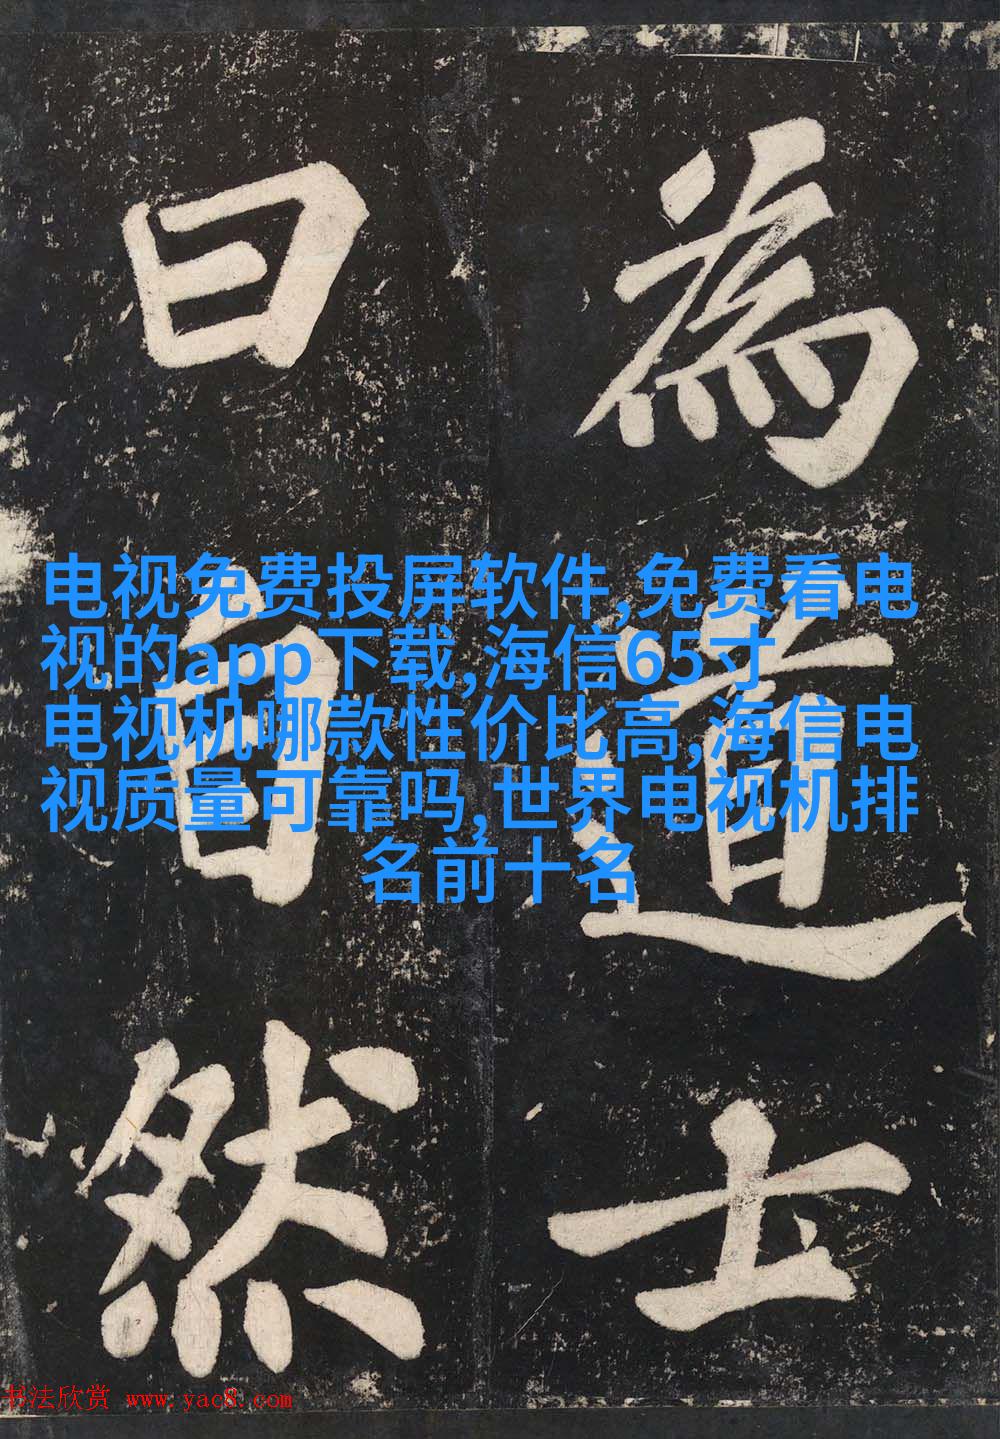 為道士
曰自然
电视免费投屏软件,免费看电
视的app下载,海信65寸
电视机哪款性价比高,海信电
视质量可靠吗,世界电视机排
名前十名
书法欣赏 www.yac8.com